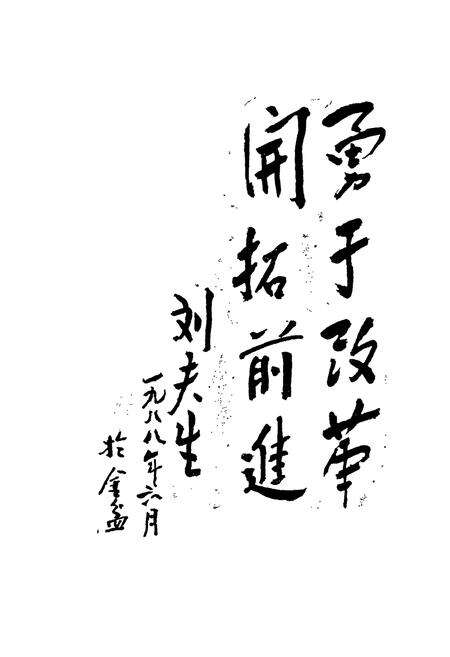 勇于改革
開拓前進
刘夫生
一九八八年六月
於金盆